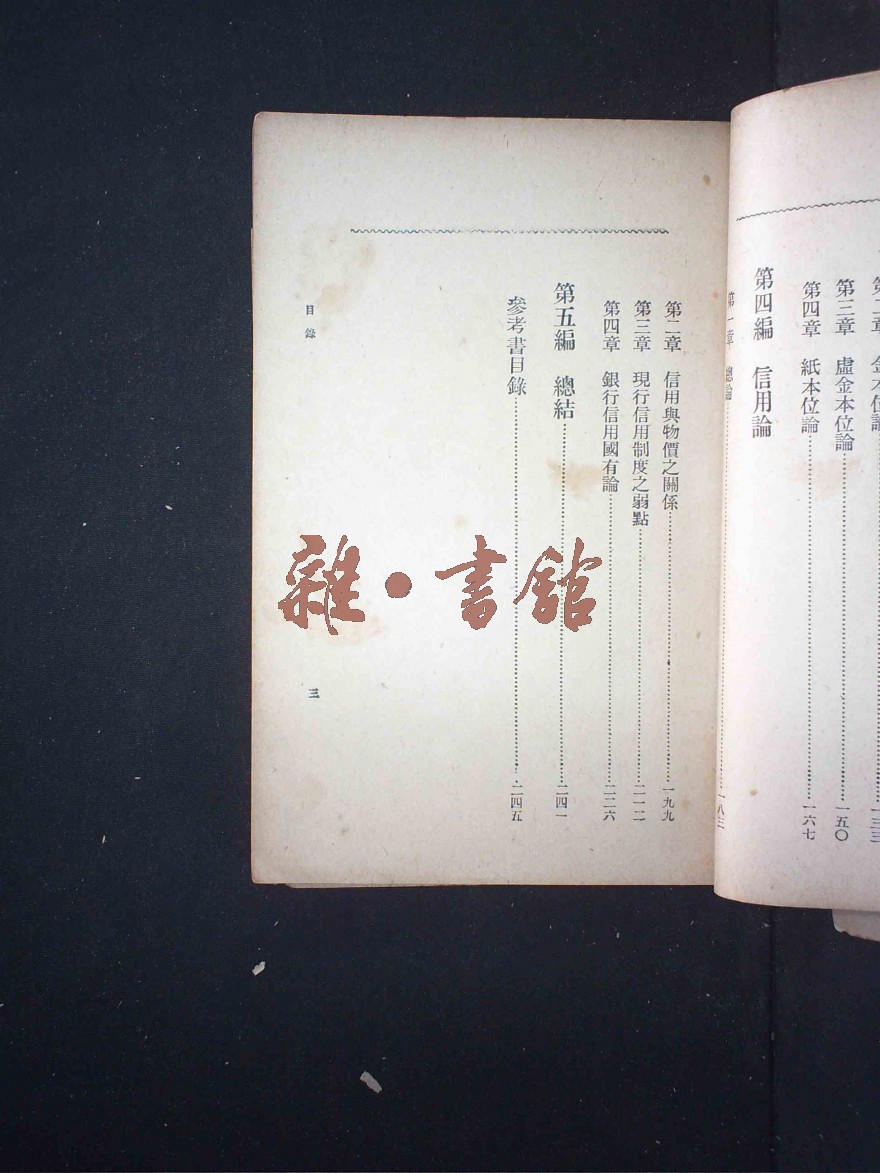 金本位論……一三三
第三章　虛金本位論……一五〇
第四章　紙本位論……一六七
第四編　信用論
第一章　總論……一八三
第二章　信用與物價之關係……一九九
第三章　現行信用制度之弱點……二一二
第四章　銀行信用國有論……二二六
第五編　總結……二四一
參考書目錄……二四五
目錄
三
雜・書館